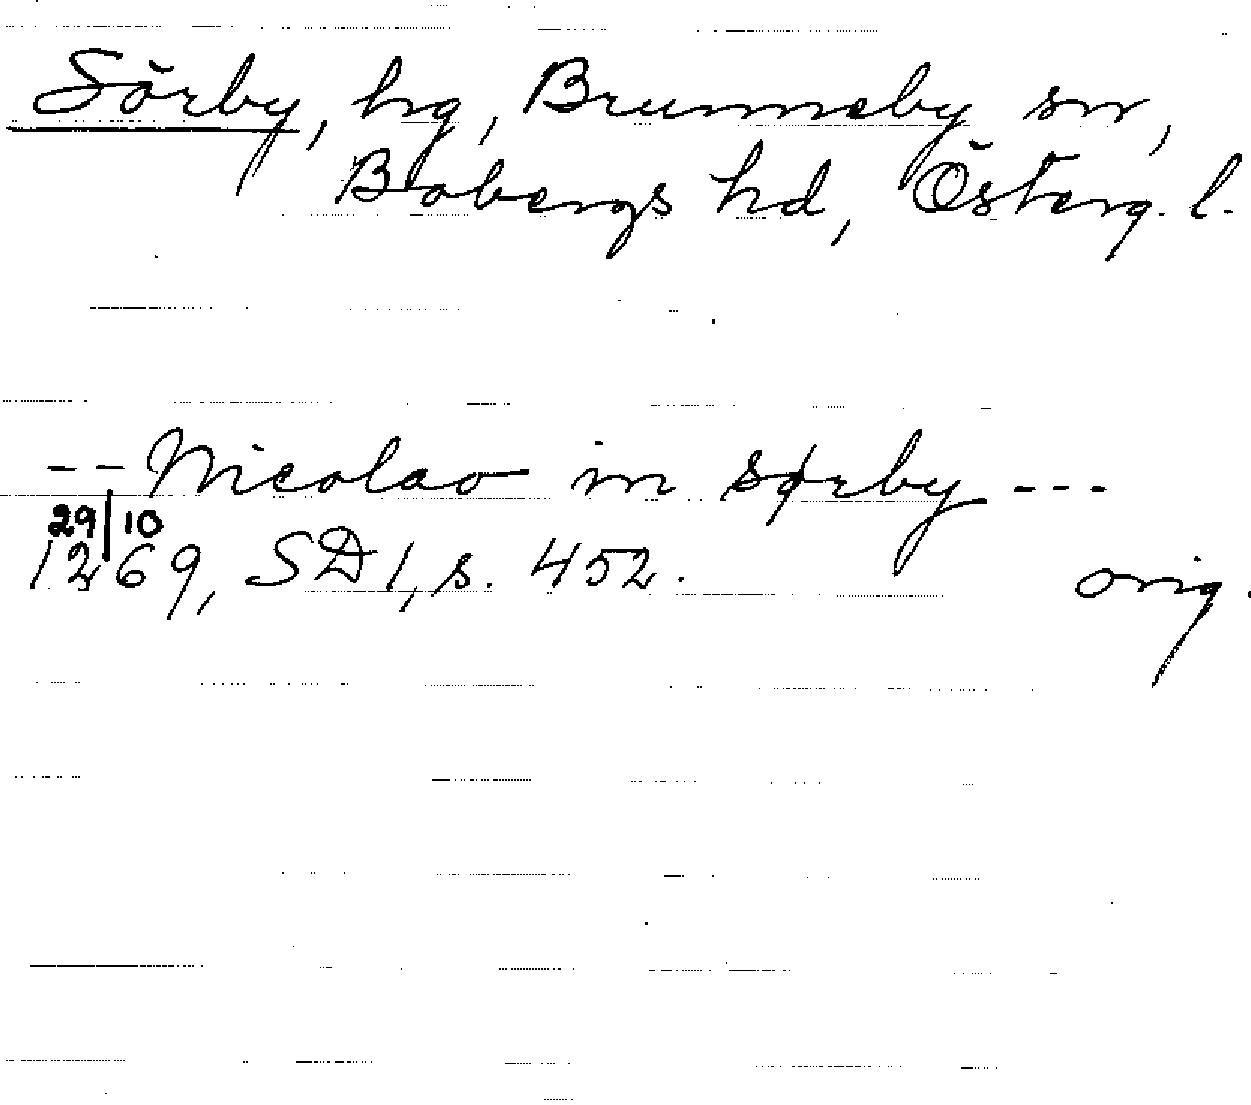 Sörby, hg, Brunneby sn,
Bobergs hd, Österg. l.
-- Nicolao in sørby ---
29/10
1269, SD 1, s. 452. orig.